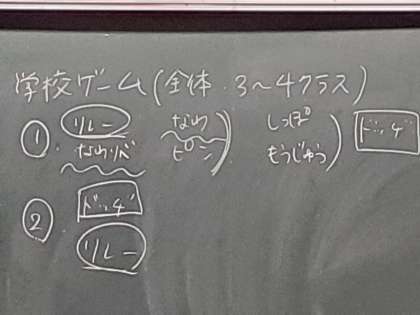 学校ゲーム(全体・3〜4クラス)
① リレー なわ しっぽ ドッチ
なわリレ ピン もうじゅう
② ドッチ
リレー